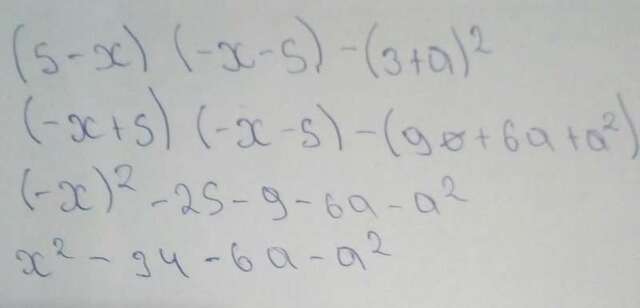 (5-x) (-x-5) -(3+a)²
(-x+5) (-x-5) -(9+6a+a²)
(-x)² -25-9-6a-a²
x² -34-6a-a²